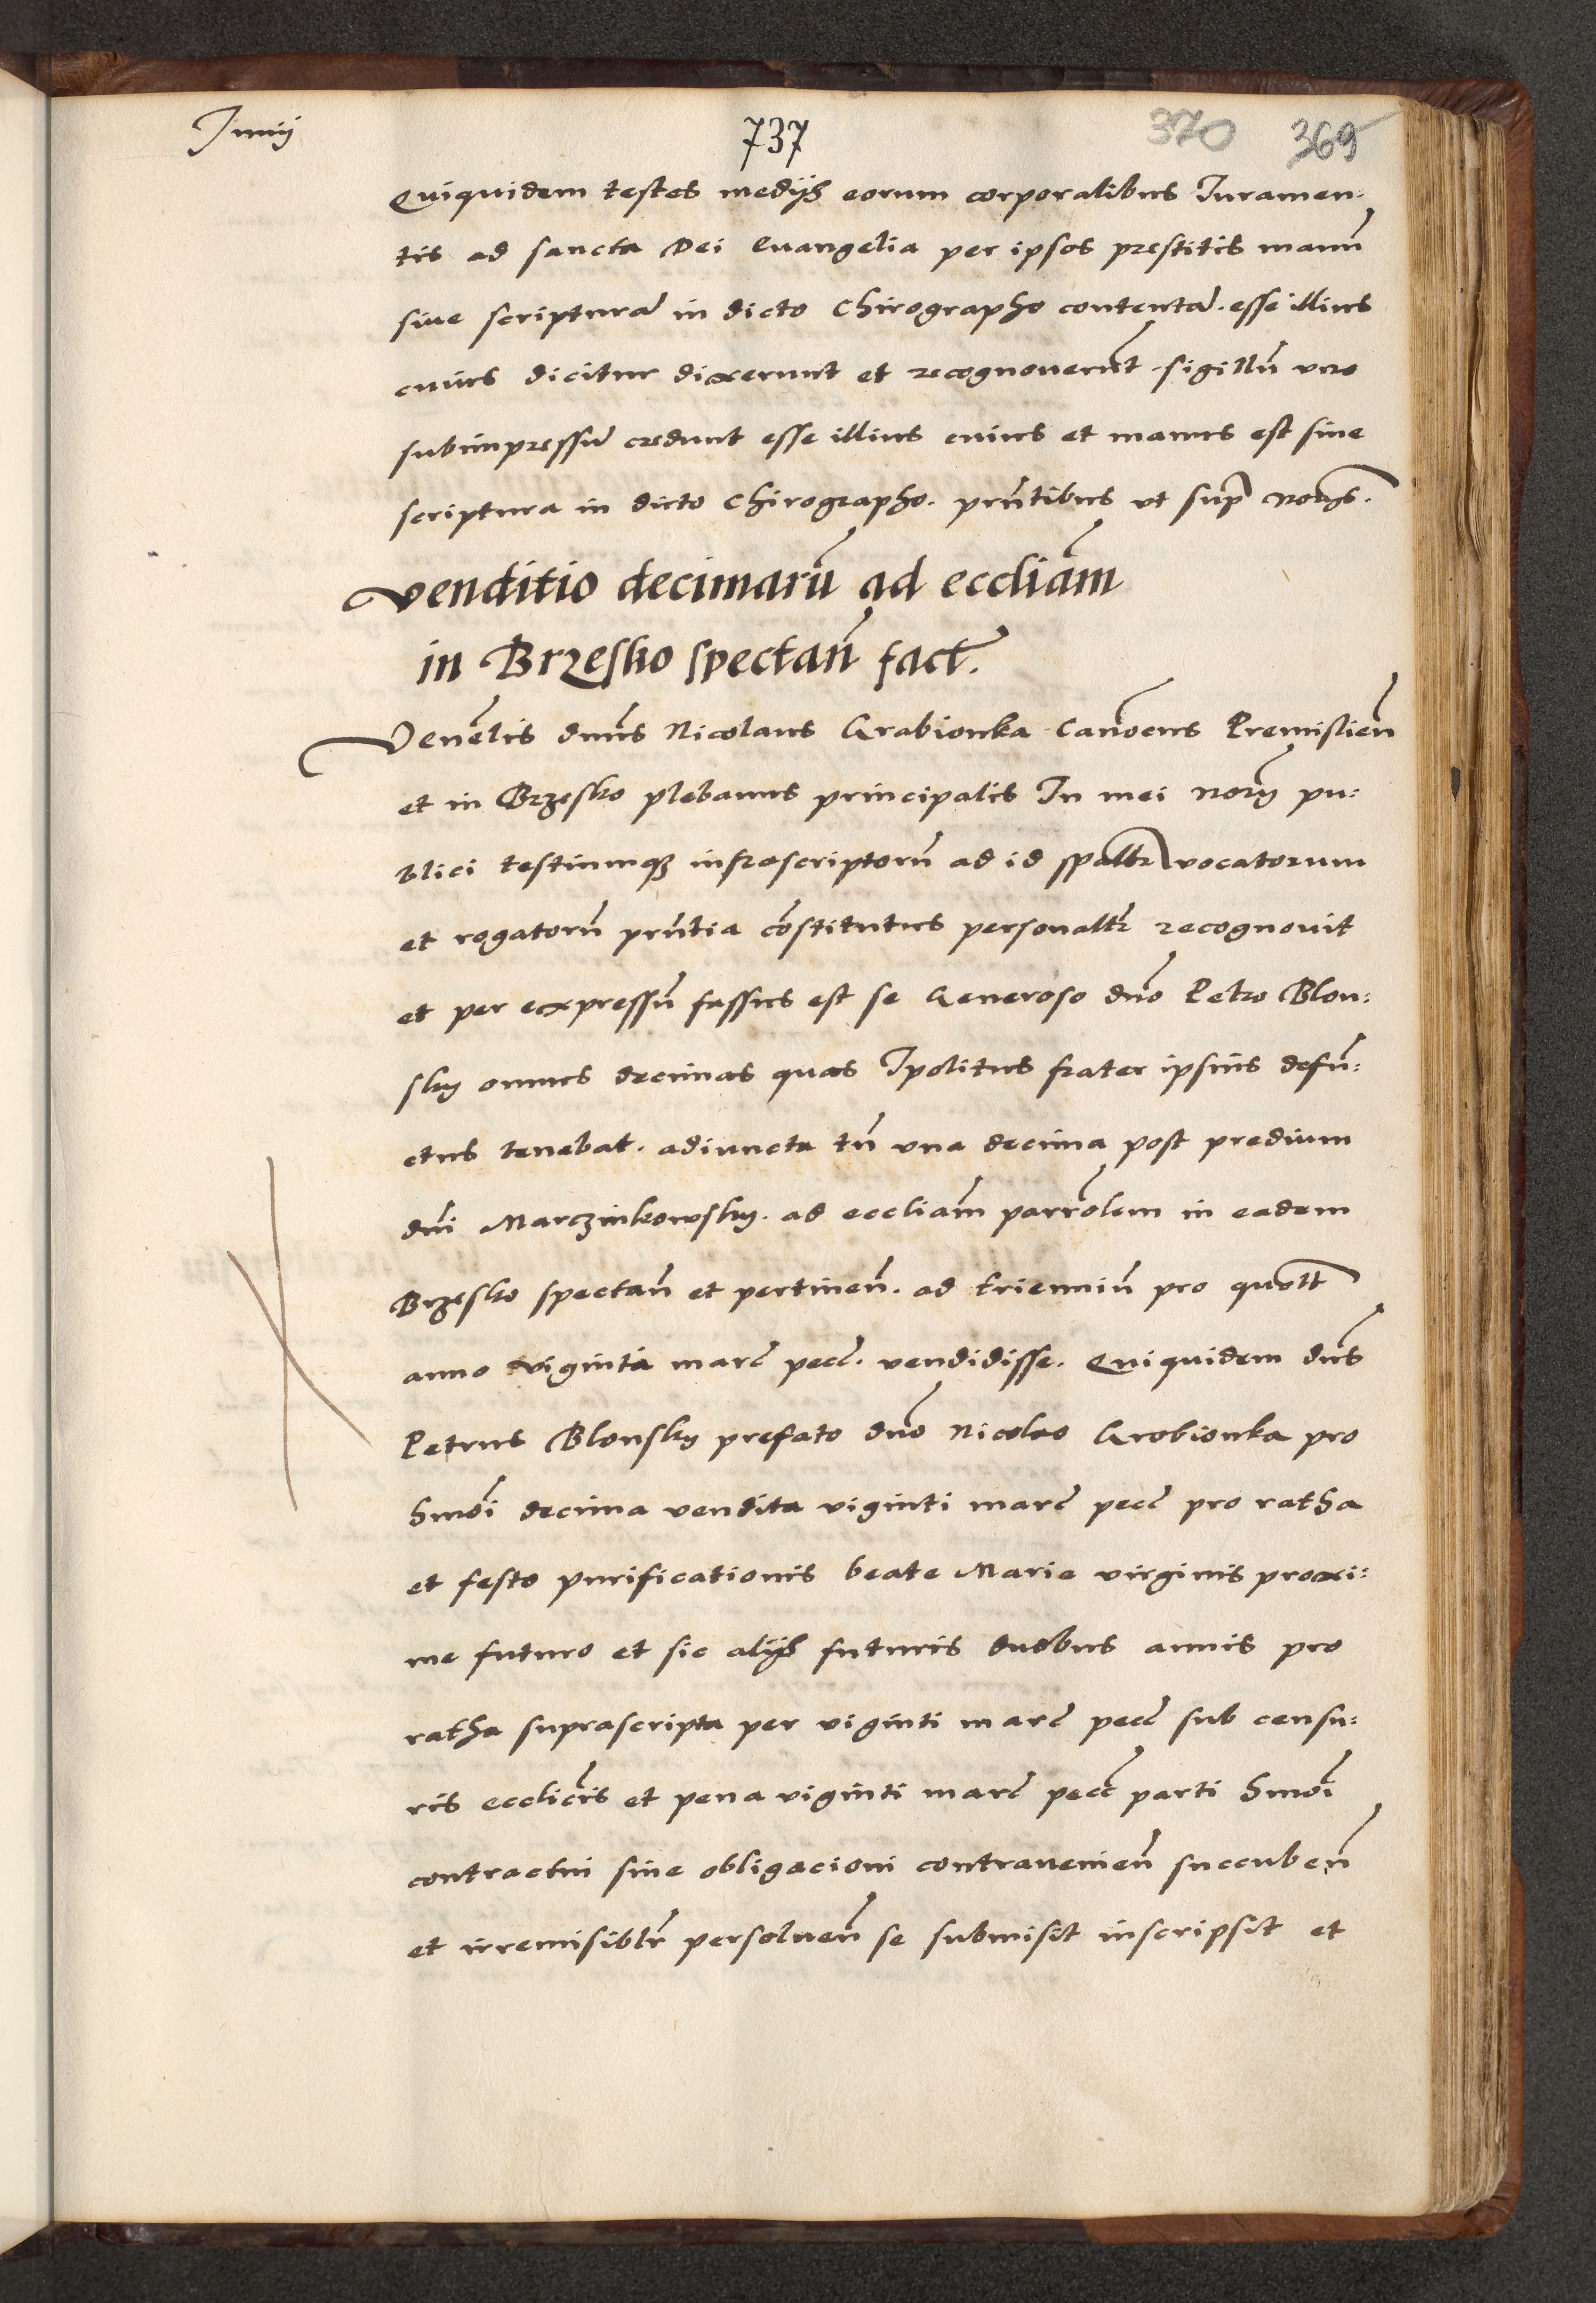 Junij 737 370 369
Quiquidem testes medijs eorum corporalibus Juramen-
tis ad sancta Dei Euangelia per ipsos prestitis manū
siue scripturā in dicto Chirographo contentā. esse illius
cuius dicitur dixerunt et recognouerūt. sigillū vero
subimpressū credunt esse illius cuius et manus est siue
scriptura in dicto Chirographo. prn̄tibus vt supra
Venditio decimarū ad eccliam̄
in Brzesko spectan̄ fact.
Venēlis dnūs Nicolaus Grabionka Canōcus Premislien̄
et in Brzesko plebanus principalis In mei norij pu:
blici testiumqꝫ infrascriptorū ad id spaltr vocatorum
et rogatorū prn̄tia cōstitutus personaltr recognouit
et per expressū fassus est se Generoso dnō Petro Blon:
sky omnes decimas quas Ipolitus frater ipsius defun̄:
ctus tenebat. adiuncta tn̄ vna decima post predium
dnī Marczinkowsky. ad eccliam̄ parrōlem in eadem
Brzesko spectan̄ et pertinen̄. ad trienniū pro quolt
anno viginti marc pecc. vendidisse. Quiquidem dns̄
Petrus Blonsky prefato dnō Nicolao Grabionka pro
hmōi decima vendita viginti marc pecc pro ratha
et festo purificationis beate Marie virginis proxi:
me futuro et sic alijs futuris duobus annis pro
ratha suprascripta per viginti marc pecc sub censu:
ris ecclicīs et pena viginti marc pecc parti hmōi
contractui siue obligacioni contrauenien̄ succuben̄
et irremisiblr̄ persoluen̄ se submisit inscripsit et